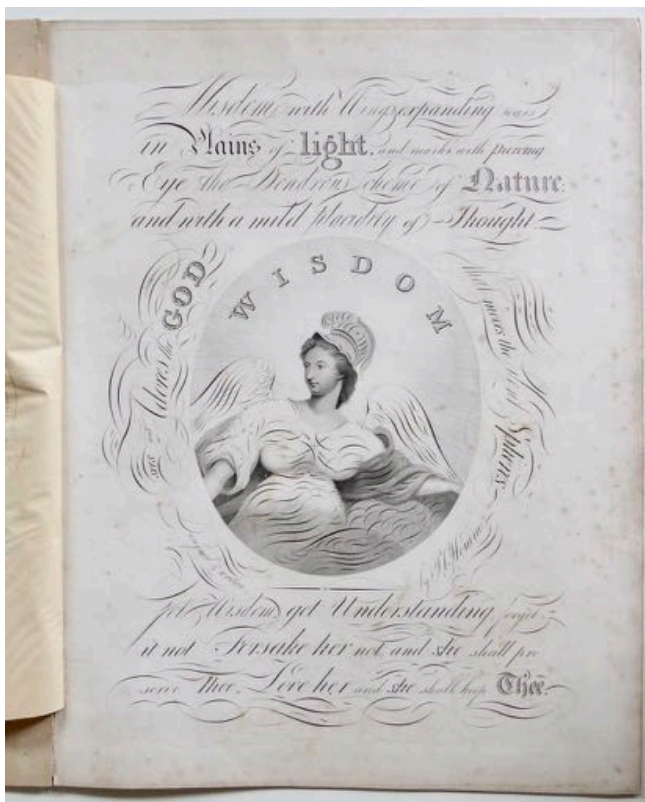 Wisdom, with Wings expanding soars
in Plains of light. and marks with piercing
Eye the Wondrous Scheme of Nature:
and with a mild placidity of Thought
sees and Adores the GOD
WISDOM
that moves the Spheres
by
get Wisdom, get Understanding, forget
it not Forsake her not, and she shall pre
serve Thee, Love her and she shall keep Thee.